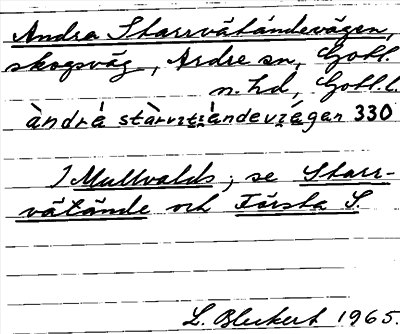 Andra Starrvätändevägen,
skogsväg, Ardre sn, Gotl.
n. hd, Gotl. l.
àndrà stàrvztzàndevzágen 330
I Mullvalds; se Starr-
vätände och Första S.
L. Bleckert 1965.